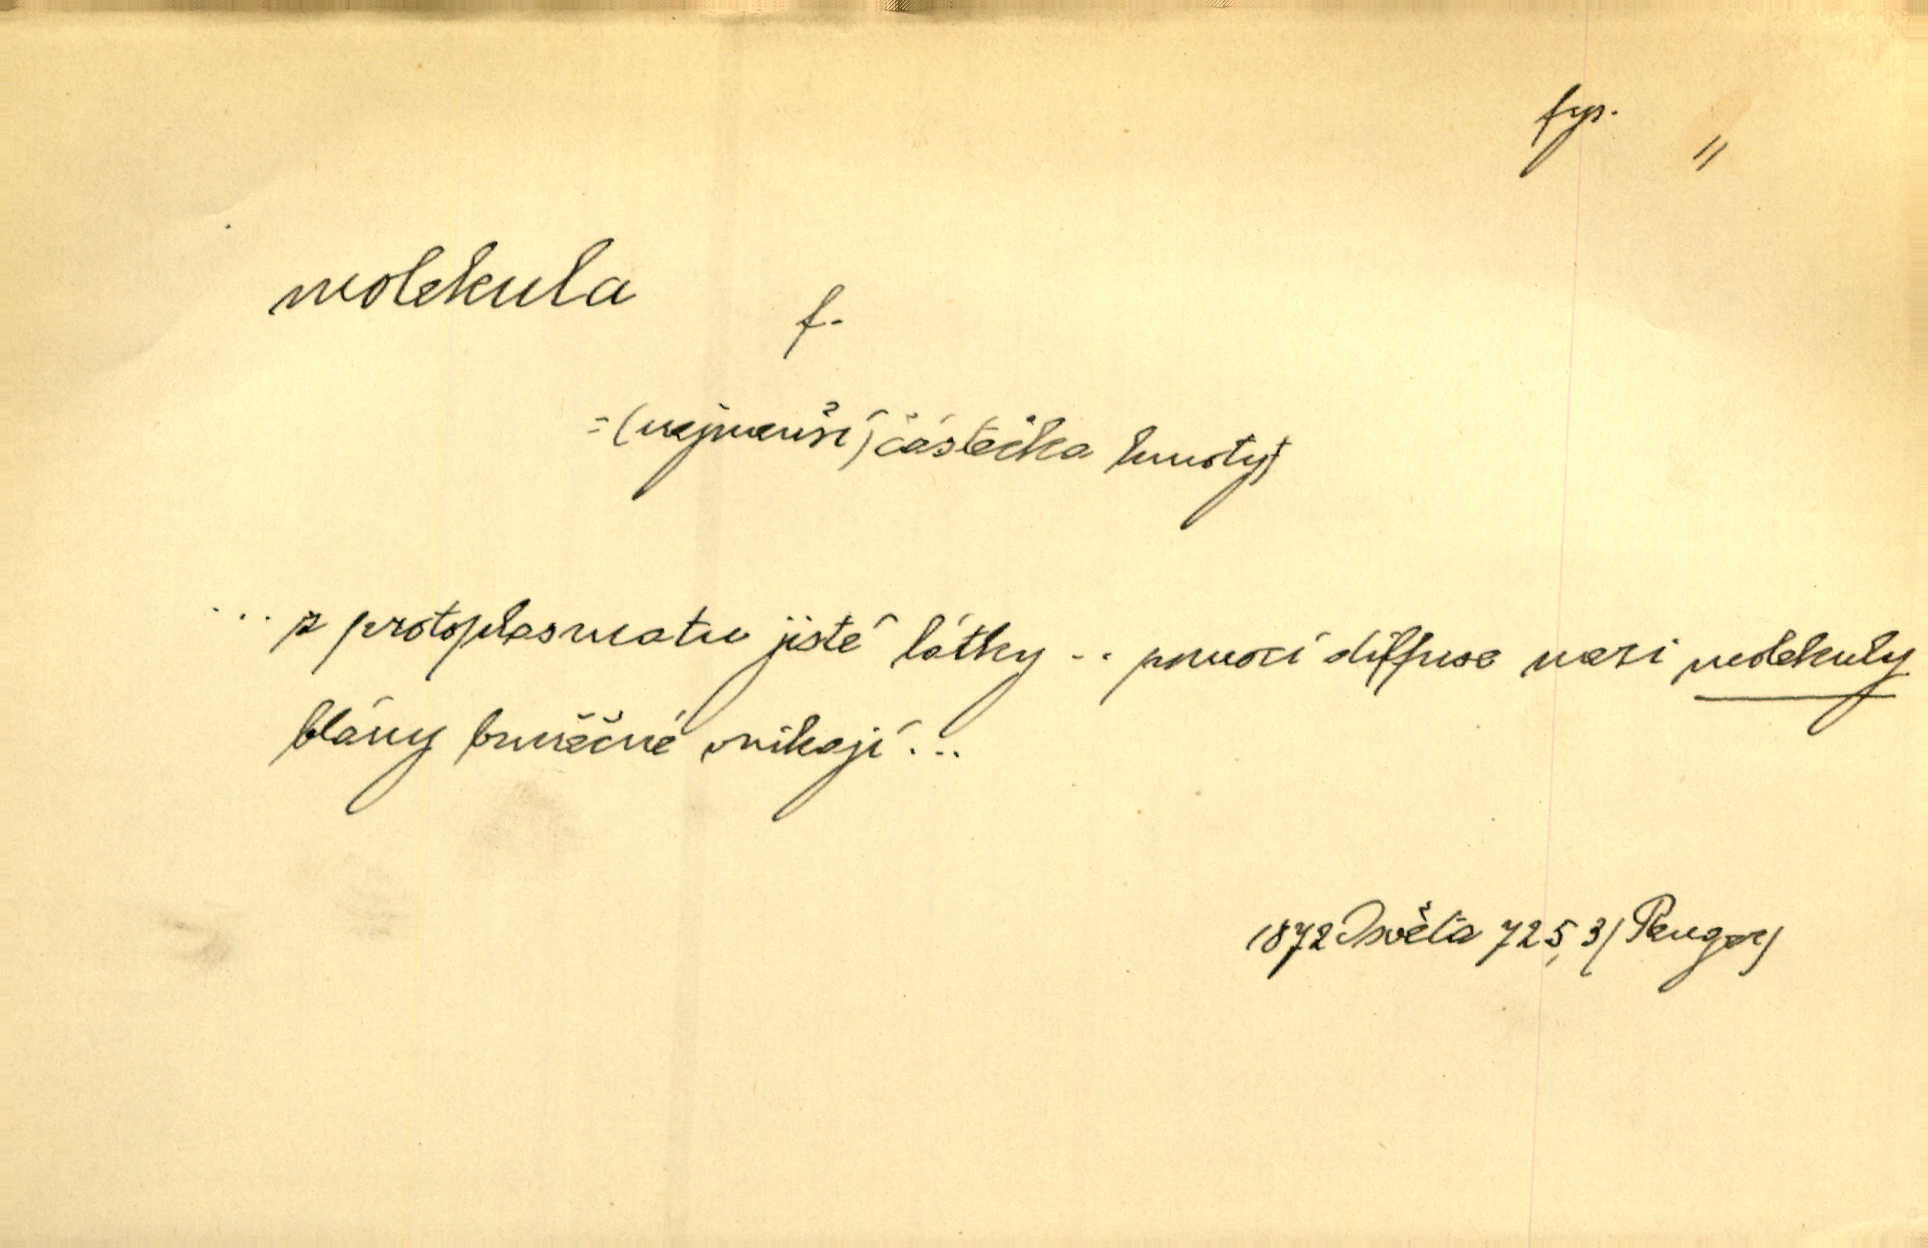 fys. "
molekula f.
= (nejmenší) částečka hmoty)
... z protoplasmatu jisté látky .. pomocí diffuse mezi molekuly
blány buněčné vnikají ...
1872 Osvěta 725, 3/